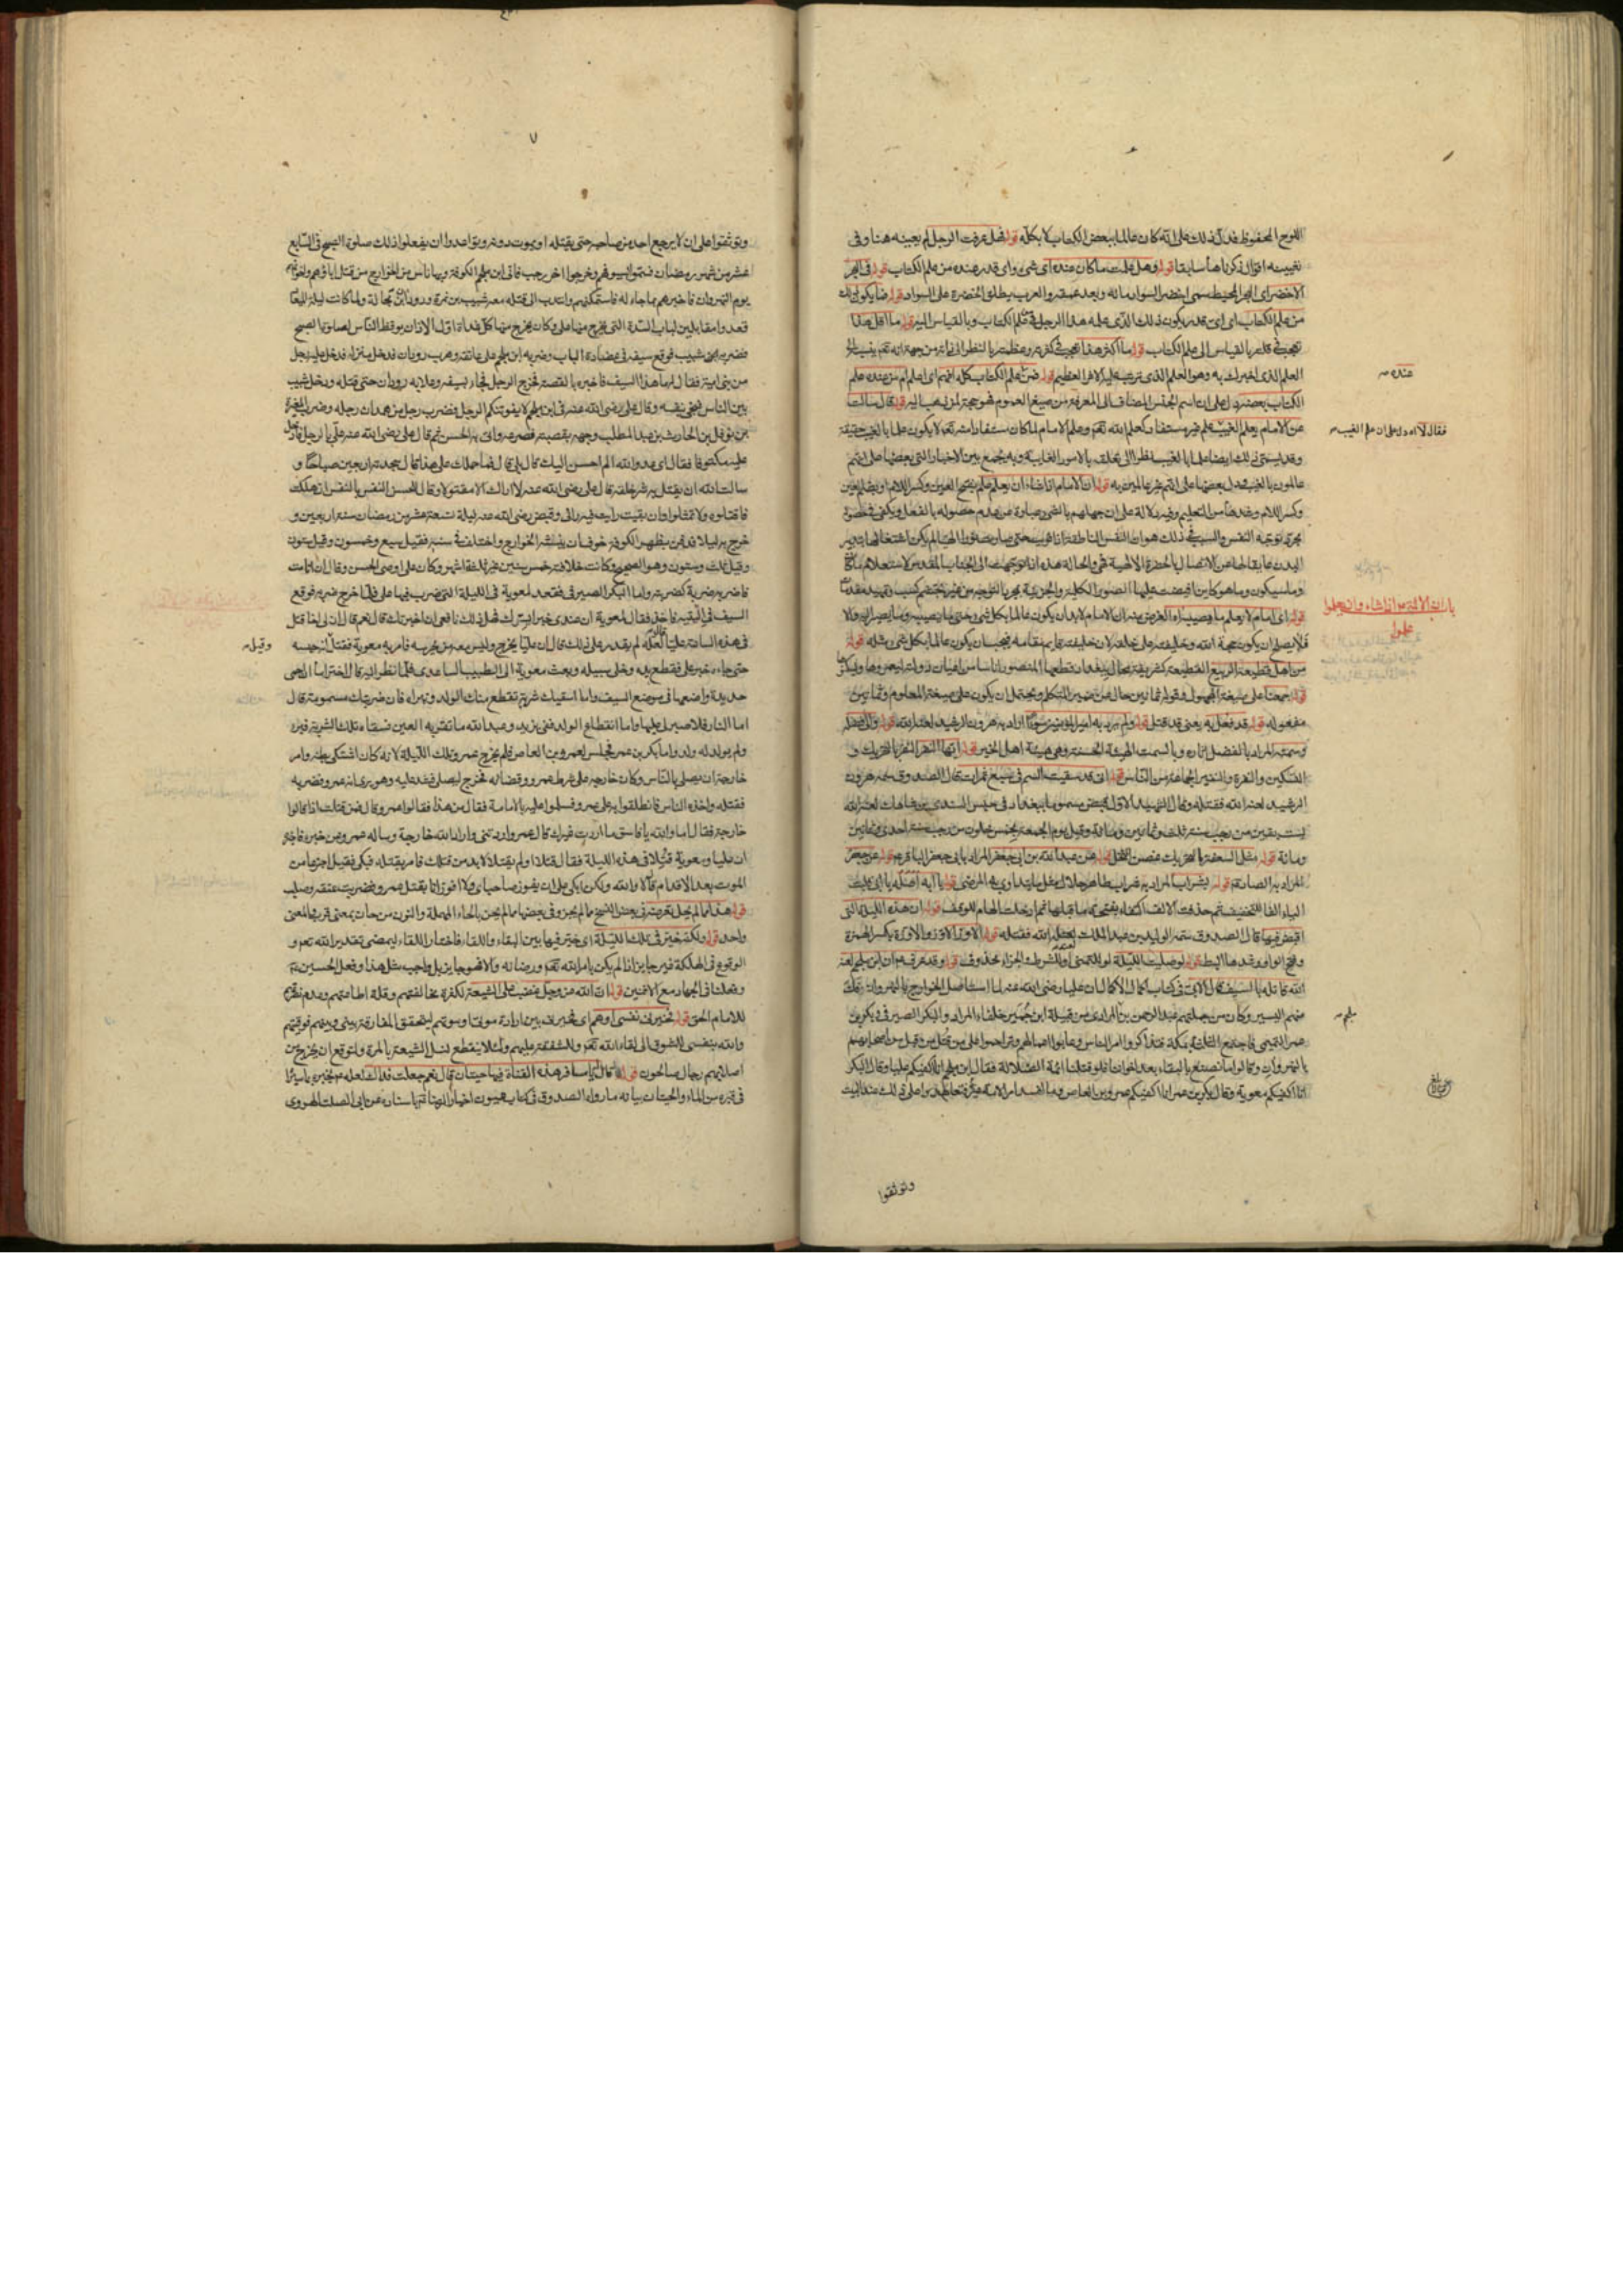 اللوح المحفوظ فدل ذلك على انه كان عالما ببعض الكتاب لا بكله قوله فهل عرفت الرجل لم يعينه هنا وفى
تعيينه اقوال ذكرناها سابقا قوله وهل علمت ما كان عنده اى شىء واى قدر عنده من علم الكتاب قوله فى البحر
الاخضر اى البحر المحيط سمى اخضر لسواد مائه وبعد عمقه والعرب يطلق الخضرة على السواد قوله فما يكون ذلك
من علم الكتاب اى اى قدر يكون ذلك الذى علمه هذا الرجل فى علم الكتاب وبالقياس اليه قوله ما اقل هذا
تعجب فى قلته بالقياس الى علم الكتاب قوله ما اكثر هذا تعجب فى كثرته وعظمته بالنظر الى ذاته من جهة انه تعالى ينسبه الى
العلم الذى اخبرك به وهو العلم الذى ترتب عليه الامر العظيم قوله فمن عنده علم الكتاب كله افهم اى اعلم ام من عنده علم
الكتاب بعضه دل على ان اسم الجنس المضاف الى المعرفة من صيغ العموم فهو حجة لمن ذهب اليه قوله قال سالت
عن الامام يعلم الغيب علم غير مستفاد كعلم الله تعالى وعلم الامام لما كان مستفادا منه تعالى لا يكون علما بالغيب حقيقة
وقد يسمى ذلك ايضا علما بالغيب نظرا الى تعلقه بالامور الغايبة وبه يجمع بين الاخبار التى بعضها على انهم
عالمون بالغيب ويدل بعضها على انهم غير عالمين به قوله ان الامام اذا شاء ان يعلم علم بفتح العين وكسر اللام او بضم العين
وكسر اللام وشدها من التعليم وفيه دلالة على ان جهلهم بالشىء عبارة عن عدم حصوله بالفعل ويكفى فى حصوله
مجرد توجه النفس والسبب فى ذلك هو ان النفس الناطقة اذا قويت حتى صارت نورا الهيا لم يكن اشتغالها بتدبير
البدن عايقا لها عن الاتصال بالحضرة الالهية فهى والحالة هذه اذا توجهت الى الجناب المقدس لاستعلام ما كان
وما سيكون وما هو كاين افيضت عليها الصور الكلية والجزئية بمجرد التوجه من غير تجشم كسب وتمهيد مقدمات
قوله اى امام لا يعلم ما يصيبه اه الغرض منه ان الامام لابد ان يكون عالما بكل شىء حتى ما يصيبه وما يصير اليه ولا
فلا يصلح ان يكون حجة الله وخليفته على خلقه لان خليفته قايم مقامه فيجب ان يكون عالما بكل شىء مثله قوله
من اهل قطيعة الربيع القطيعة كشريفة محال ببغداد قطعها المنصور اناسا من اعيان دولته ليعمروها ويسكنوها
قوله جمعنا على صيغة المجهول وقوله ثمانين حال عن ضمير المتكلم ويحتمل ان يكون على صيغة المعلوم وثمانين
مفعوله قوله قد فعل به يعنى قد قتل قوله ولم يرد به امير المؤمنين سوءا اراد به هرون الرشيد لعنه الله قوله والى فضله
وسمته المراد بالفضل اثاره وبالسمت الهيئة الحسنة وهى هيئة اهل الخير قوله ايها النفر النفر بالتحريك و
التسكين والنفرة والنفير الجماعة من الناس قوله انى قد سقيت السم فى سبع تمرات قال الصدوق سمه هرون
الرشيد لعنه الله فقتله وقال الشهيد الاول قبض مسموما ببغداد فى حبس السندى بن شاهك لعنه الله
لست بقين من رجب سنة ثلث وثمانين ومائة وقيل يوم الجمعة لخمس خلون من رجب سنة احدى وثمانين
ومائة قوله مثل السعفة بالتحريك غصن النخل قوله عن عبد الله بن ابى جعفر المراد بابى جعفر الباقر قوله عن جعفر
المراد به الصادق قوله بشراب المراد به شراب طاهر حلال لعل ما يتداوى به المرضى قوله يا ابه اصله يا ابى قلبت
الياء الفا للتخفيف ثم حذفت الالف اكتفاء بفتحة ما قبلها ثم ادخلت الهاء للوقف قوله ان هذه الليلة التى
اقبض فيها قال الصدوق سمه الوليد بن عبد الملك لعنه الله فقتله قوله الاوز الاوز والاوزة بكسر الهمزة
وفتح الواو وشدها البط قوله لو صليت الليلة لو للتمنى او للشرط والجزاء محذوف قوله وقد عرف ان ابن ملجم لعنه
الله قاتله بالسيف قال الابى فى كتاب اكمال الاكمال ان عليا رضى الله عنه لما استاصل الخوارج بالنهروان فلت
منهم اليسير وكان من جملتهم عبد الرحمن بن المرادى من قبيلة ابن حمير خلفاء المراد والبكر الصيرفى وبكر بن
عمر التميمى فاجتمع الثلثة بمكة فتذاكروا امر الناس وعابوا اعمالهم وترحموا على من قتل من اصحابهم
بالنهروان وقالوا ما نصنع بالبقاء بعد اخواننا فلو قتلنا ائمة الضلالة فقال ابن ملجم انا اكفيكم عليا وقال البكر
انا اكفيكم معوية وقال بكر بن عمر انا اكفيكم عمرو بن العاص وما افسد امر الامة غيره فتعاهدوا على ذلك عند البيت
عنده
فقال لا اه دل على ان علم الغيب
باب ان الائمة اذا شاءوا ان يعلموا علموا
ملجم
وتوثقوا
٧
وتوثقوا على ان لا يرجع احد عن صاحبه حتى يقتله او يموت دونه وتواعدوا ان يفعلوا ذلك صلوة الصبح فى السابع
عشر من شهر رمضان فسموا سيوفهم وخرجوا اخر رجب فاتى ابن ملجم الكوفة وبها ناس من الخوارج من قتل اباؤهم واخوانهم
يوم النهروان فاخبرهم بما جاء له فاستكتمهم وانتدب الى قتله معه شبيب بن نمرة ووردان بن مجالة ولما كانت ليلة الميعاد
قعدوا مقابلين لباب السدة التى يخرج منها على وكان يخرج منها كل غداة اول الاذان يوقظ الناس لصلوة الصبح
فضربه شبيب فوقع سيفه فى عضادة الباب وضربه ابن ملجم على عاتقه وهرب وردان فدخل منزله فدخل عليه رجل
من بنى امية فقال له ما هذا السيف فاخبره بالقصة فخرج الرجل فجاء بسيفه وعلا به وردان حتى قتله ودخل شبيب
بين الناس فنجى نفسه وقال على رضى الله عنه فى ابن ملجم لا يفوتنكم الرجل فضرب رجل من همدان رجله وضرب المغيرة
بن نوفل بن الحارث بن عبد المطلب وجهه بقصبة فصرعه واتى به الحسن ثم قال على رضى الله عنه على بالرجل فادخل
عليه مكتوفا فقال اى عدو الله الم احسن اليك قال بلى قال فما حملك على هذا قال شحذته اربعين صباحا و
سالت الله ان يقتل به شر خلقه قال على رضى الله عنه لا اراك الا مقتولا وقال للحسن النفس بالنفس ان هلكت
فاقتلوه ولا تمثلوا وان بقيت رايت فيه رائى وقبض رضى الله عنه ليلة تسعة عشر من رمضان سنة اربعين و
خرج به ليلا فدفن بظهر الكوفة خوف ان ينبشه الخوارج واختلف فى سنه فقيل سبع وخمسون وقيل ستون
وقيل ثلث وستون وهو الصحيح وكانت خلافته خمس سنين غير ثلثة اشهر وكان على اوصى الحسن وقال ان انا مت
فاضربه ضربة كضربته واما البكر الصيرفى فقعد لمعوية فى الليلة التى ضرب فيها على فلما خرج ضربه فوقع
السيف فى اليته فاخذ فقال لمعوية ان عندى خبرا يسرك فهل ذلك نافعى ان اخبرتك قال نعم قال ان لى اخا قتل
فى هذه الساعة عليا قال لعله لم يقدر على ذلك قال ان عليا يخرج وليس معه من يحرسه فامر به معوية فقتل لحبسه
حتى جاءه خبر على فقطع يده وخلى سبيله وبعث معوية الى الطبيب الساعدى فلما نظر اليه قال اختر اما ان احمى
حديدة واضعها فى موضع السيف واما اسقيك شربة تقطع منك الولد وتبراء فان ضربتك مسمومة قال
اما النار فلا صبر لى عليها واما انقطاع الولد ففى يزيد وعبد الله ما تقر به العين فسقاه تلك الشربة فبرء
ولم يولد له ولد واما بكر بن عمر فجلس لعمرو بن العاص فلم يخرج عمرو تلك الليلة لانه كان اشتكى بطنه وامر
خارجة ان يصلى بالناس وكان خارجة على شرطة عمرو وقضائه فخرج ليصلى فشد عليه وهو يرى انه عمرو فضربه
فقتله واخذه الناس فانطلقوا به على عمرو فسلموا عليه بالامامة فقال من هذا فقالوا عمرو قال فمن قتلت اذا قالوا
خارجة فقال اما والله يا فاسق ما اردت غيرك قال عمرو اردتنى واراد الله خارجة وساله عمرو عن خبره فاخبره
ان عليا ومعوية قتلا فى هذه الليلة فقال قتلا او لم يقتلا لا بد من قتلك فامر بقتله فبكى فقيل اجزعا من
الموت بعد الاقدام قال لا والله ولكن ابكى على ان يفوز صاحباى ولا افوز انا بقتل عمرو فضربت عنقه وصلب
قوله هذا مما لم يحل تعرضه فى بعض النسخ مما لم يجز وفى بعضها مما لم يحن بالحاء المهملة والنون من حان بمعنى قرب والمعنى
واحد قوله ولكنه خير فى تلك الليلة اى خير فيها بين البقاء واللقاء فاختار اللقاء ليمضى تقدير الله تعالى و
الوقوع فى الهلكة غير جايز اذا لم يكن بامر الله تعالى ورضائه والا فهو جايز بل واجب مثل هذا وفعل الحسين
وفعلنا فى الجهاد مع الاثنين قوله ان الله عز وجل غضب على الشيعة لكثرة مخالفتهم وقلة اطاعتهم وعدم نصرتهم
للامام الحق قوله فخيرنى نفسى او هم اى فخيرنى بين ارادة موتنا وموتهم ليتحقق المفارقة بينى وبينهم فوقيتهم
والله بنفسى للشوق الى لقاء الله تعالى وللشفقة عليهم ولئلا ينقطع نسل الشيعة بالمرة ولتوقع ان يخرج من
اصلابهم رجال صالحون قوله قال يا مسافر هذه القناة فيها حيتان قال نعم جعلت فداك لعله
فى قبره من الماء والحيتان بيانه ما رواه الصدوق فى كتاب عيون اخبار الرضا باسناده عن ابى الصلت الهروى
وقيل